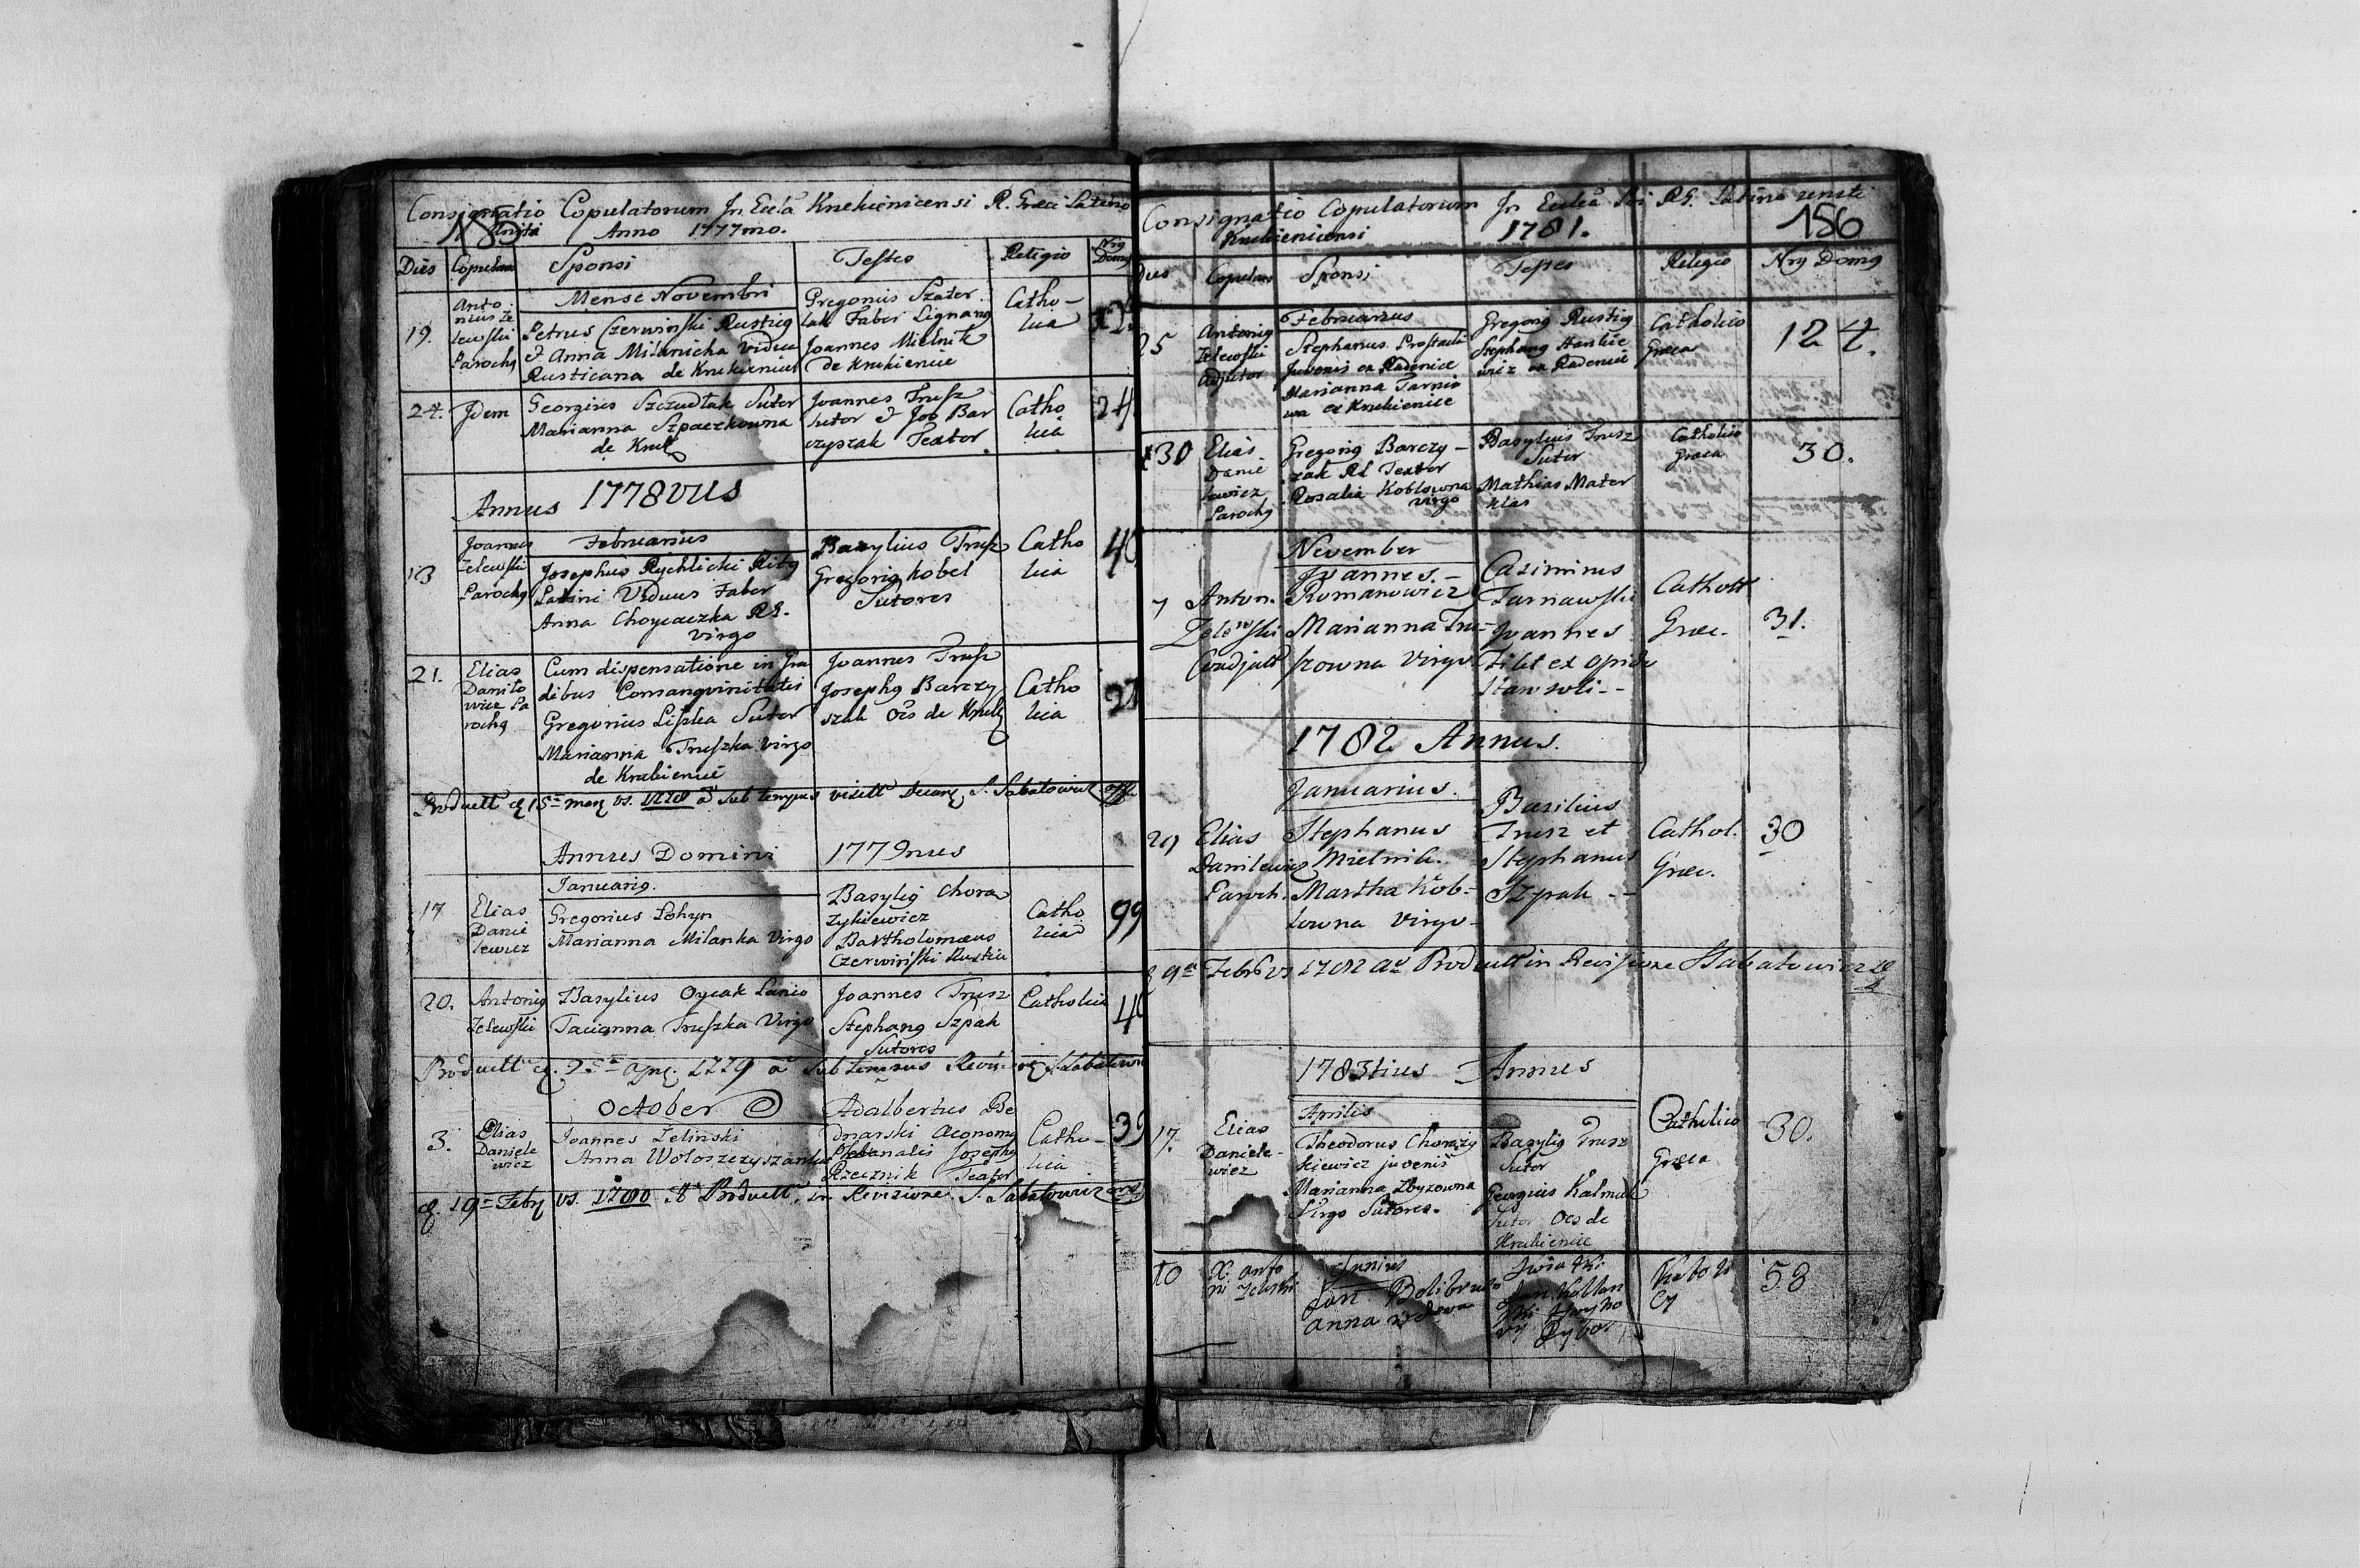 Consignatio Copulatorum In Eccla Knekienicensi R. Graeci Latino
185 Unita Anno 1777mo.
Dies Copulans Sponsi Testes Religio Nrg Domg
Mense Novembri
19. Anto
nius Ze
lewski
Parochg
Petrus Czerwinski Rusticg
& Anna Milanicha Vidua
Rusticana de Krukienice
Gregorius Szater
lak Faber Lignarig
Joannes Mielnik
de Krukienice
Catho-
lica
24. Idem
Georgius Szczudlak Sutor
Marianna Szpaczkowna
de Kruk
Joannes Trusz
Sutor & Jos Bar
czyszak Textor
Catho
lica
24
Annus 1778vus
Februarius
13 Joannes
Zelewski
Parochg
Josephus Rychlicki Ritg
Latini Viduus Faber
Anna Choycaczka RG.
virgo
Basylius Trusz
Gregorig Kobel
Sutores
Catho
lica
21. Elias
Danile
wicz Pa
rochg
Cum dispensatione in Gra
dibus Consangvinitatis
Gregorius Liszka Sutor
Marianna Truszka virgo
de Krukienice
Joannes Trusz
Josephg Barczy
szak Oes de Kruk
Catho
lica
Productt 15 1778 a sub tempus visitt Decan S. Sabatowicz
Annus Domini 1779nus
Januarig.
17 Elias
Danie
lewicz
Gregorius Lohyn
Marianna Milanka Virgo
Basylig Chora
zykiewicz
Bartholomaeus
Czerwinski Rustic
Catho
lica
99
20. Antonig
Zelewski
Basylius Oycak Lanio
Tacianna Truszka Virgo
Joannes Trusz
Stephang Szpak
Sutores
Catholica
Productt 1779 a Sub tempus S. Sabatowi
October
3. Elias
Daniele
wicz
Joannes Zelinski
Anna Woloszczyszanka
Adalbertus Be
dnarski Oeconomg
Plebanalis Josephg
Rzecznik Textor
Catho-
lica
39
19 Febr vs. 1780 Productt in Revisione S. Sabatowicz
Consignatio Copulatorum In Ecclea Sci RG. Latino uniti
Krukienicensi 1781. 156
Dies Copulans Sponsi Testes Religio Nrg Domg
Februarius
25 Antonig
Zelewski
Adjutor
Stephanus
Juvenis ex Radenice
Marianna Tarnio
wa ex Krukienice
Gregorig Rustig
Stephang Hankie
wicz ex Radenice
Catholico
Graeca
124.
30 Elias
Danie
lewicz
Parochg
Gregorig Barczy-
zak RL Textor
Rosalia Koblowna
virgo
Basylius Trusz
Sutor
Mathias Mater
klas
Catholico
Graeca
30.
November
7 Anton.
Zelewski
Coadjutt
Joannes.-
Romanowicz
Marianna Tru-
szowna Virgo.
Casimirus
Tarnawski
Joannes
Filet ex opido
Catholt
Graec.
31.
1782 Annus.
Januarius.
29 Elias
Danilewicz
Paroch.
Stephanus
Mielnik.
Martha Kob-
lowna Virgo-
Basilius
Trusz et
Stephanus
Szpak --
Cathol.
Graec.
30
9 Febr vs 1782 Productt in Revisione S Sabatowicz
1783tius Annus
Aprilis
17. Elias
Daniele-
wicz
Theodorus Chorąży
kiewicz juvenis
Marianna Zbyzowna
Virgo Sutores.
Basylig Trusz
Sutor
Georgius Kalmuk
Sutor Oes de
Krukienice
Catholico
Graeca
30.
Junius
10 X. anto
ni Zelewski
Jan
anna wdowa
Swiatki
58